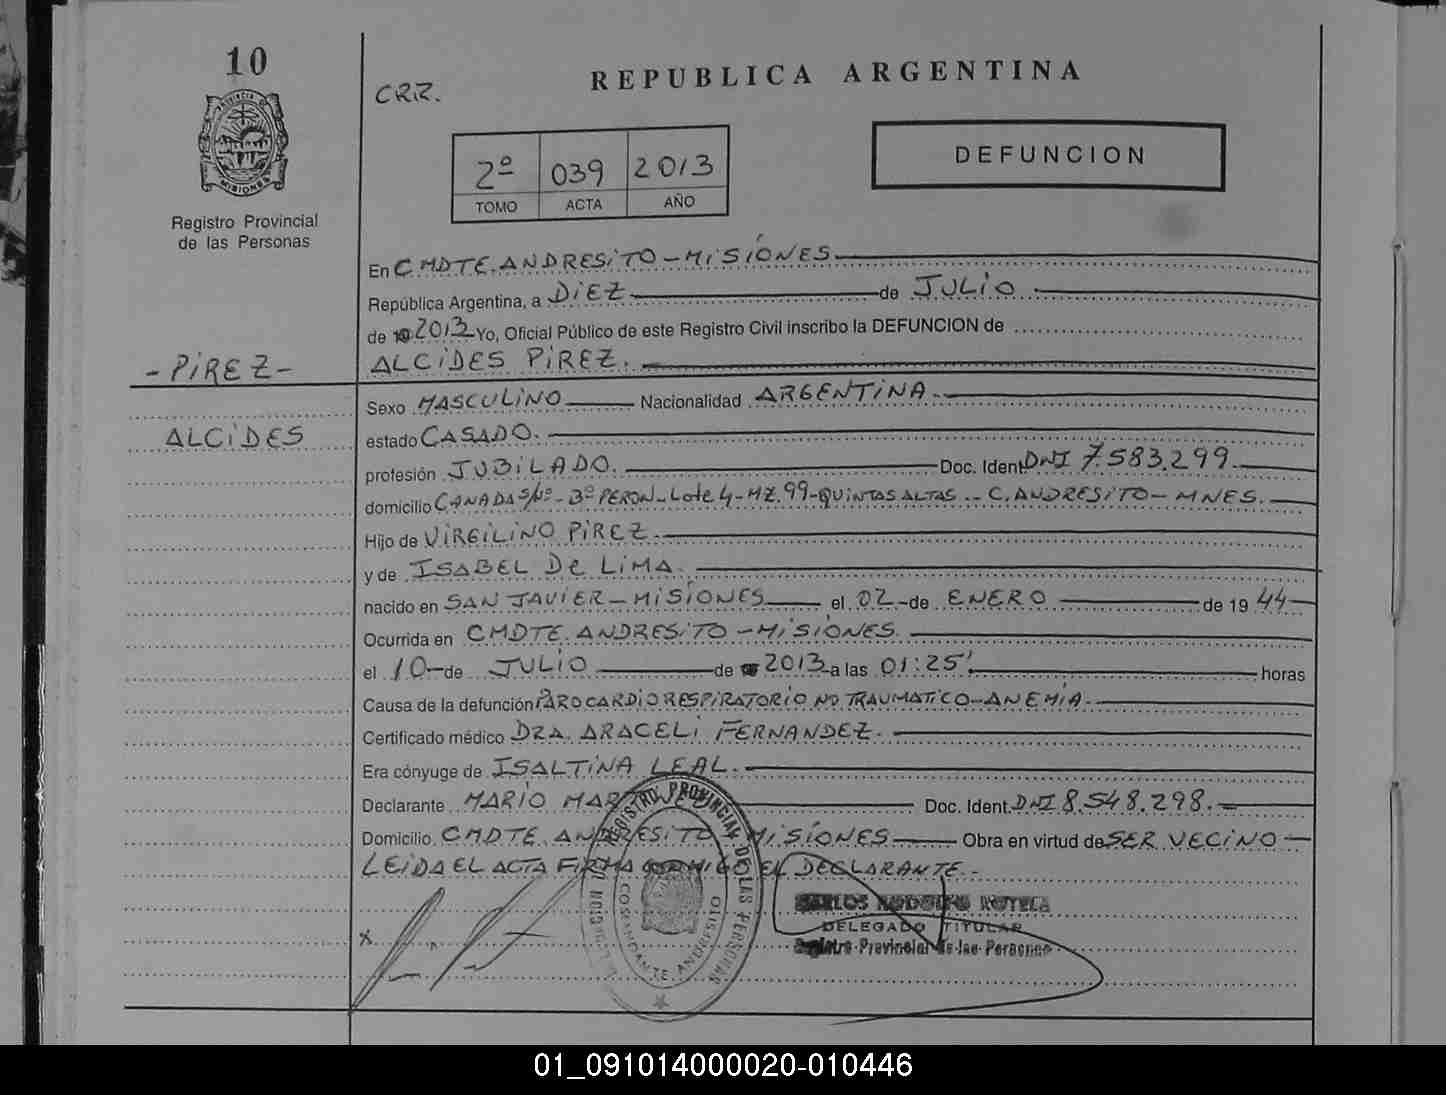 10
CRR.
REPUBLICA ARGENTINA
PROVINCIA DE
MISIONES
Registro Provincial
de las Personas
2º 039 2013
TOMO ACTA AÑO
DEFUNCION
En CMDTE. ANDRESITO - MISIONES
República Argentina, a DIEZ de JULIO
de 2013 Yo, Oficial Público de este Registro Civil inscribo la DEFUNCION de
- PIREZ -
ALCIDES PIREZ.
Sexo MASCULINO Nacionalidad ARGENTINA
ALCIDES
estado CASADO.
profesión JUBILADO. Doc. Ident. DNI 7.583.299.
domicilio CANADA S/Nº - Bº PERON - Lote 4 - MZ. 99 - QUINTAS ALTAS - C. ANDRESITO - MNES.
Hijo de VIRGILINO PIREZ.
y de ISABEL De LIMA.
nacido en SAN JAVIER - MISIONES el 02 de ENERO de 1944
Ocurrida en CMDTE. ANDRESITO - MISIONES.
el 10 de JULIO de 2013 a las 01:25' horas
Causa de la defunción PAROCARDIORESPIRATORIO NO TRAUMATICO - ANEMIA.
Certificado médico DRA. ARACELI FERNANDEZ.
Era cónyuge de ISALTINA LEAL.
Declarante MARIO Doc. Ident. DNI 8.548.298.
Domicilio CMDTE. ANDRESITO - MISIONES Obra en virtud de SER VECINO
LEIDA EL ACTA FIRMA CONMIGO EL DECLARANTE.
REGISTRO PROVINCIAL DE LAS PERSONAS
COMANDANTE ANDRESITO
x
CARLOS RODOLFO
DELEGADO TITULAR
Registro Provincial de las Personas
01_091014000020-010446